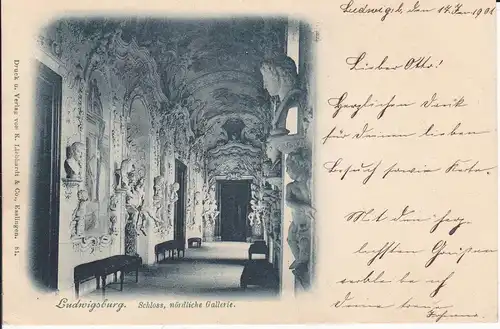 Ludwigsb., den 14. Jan 1901
Lieber Otto!
Herzlichen Dank
für Deinen lieben
Besuch sowie Karte.
Mit den herz-
lichsten Grüßen
verbleibe ich
Deine treue
Ludwigsburg. Schloss, nördliche Gallerie.
Druck u. Verlag von R. Liebhardt & Co., Esslingen. 51.